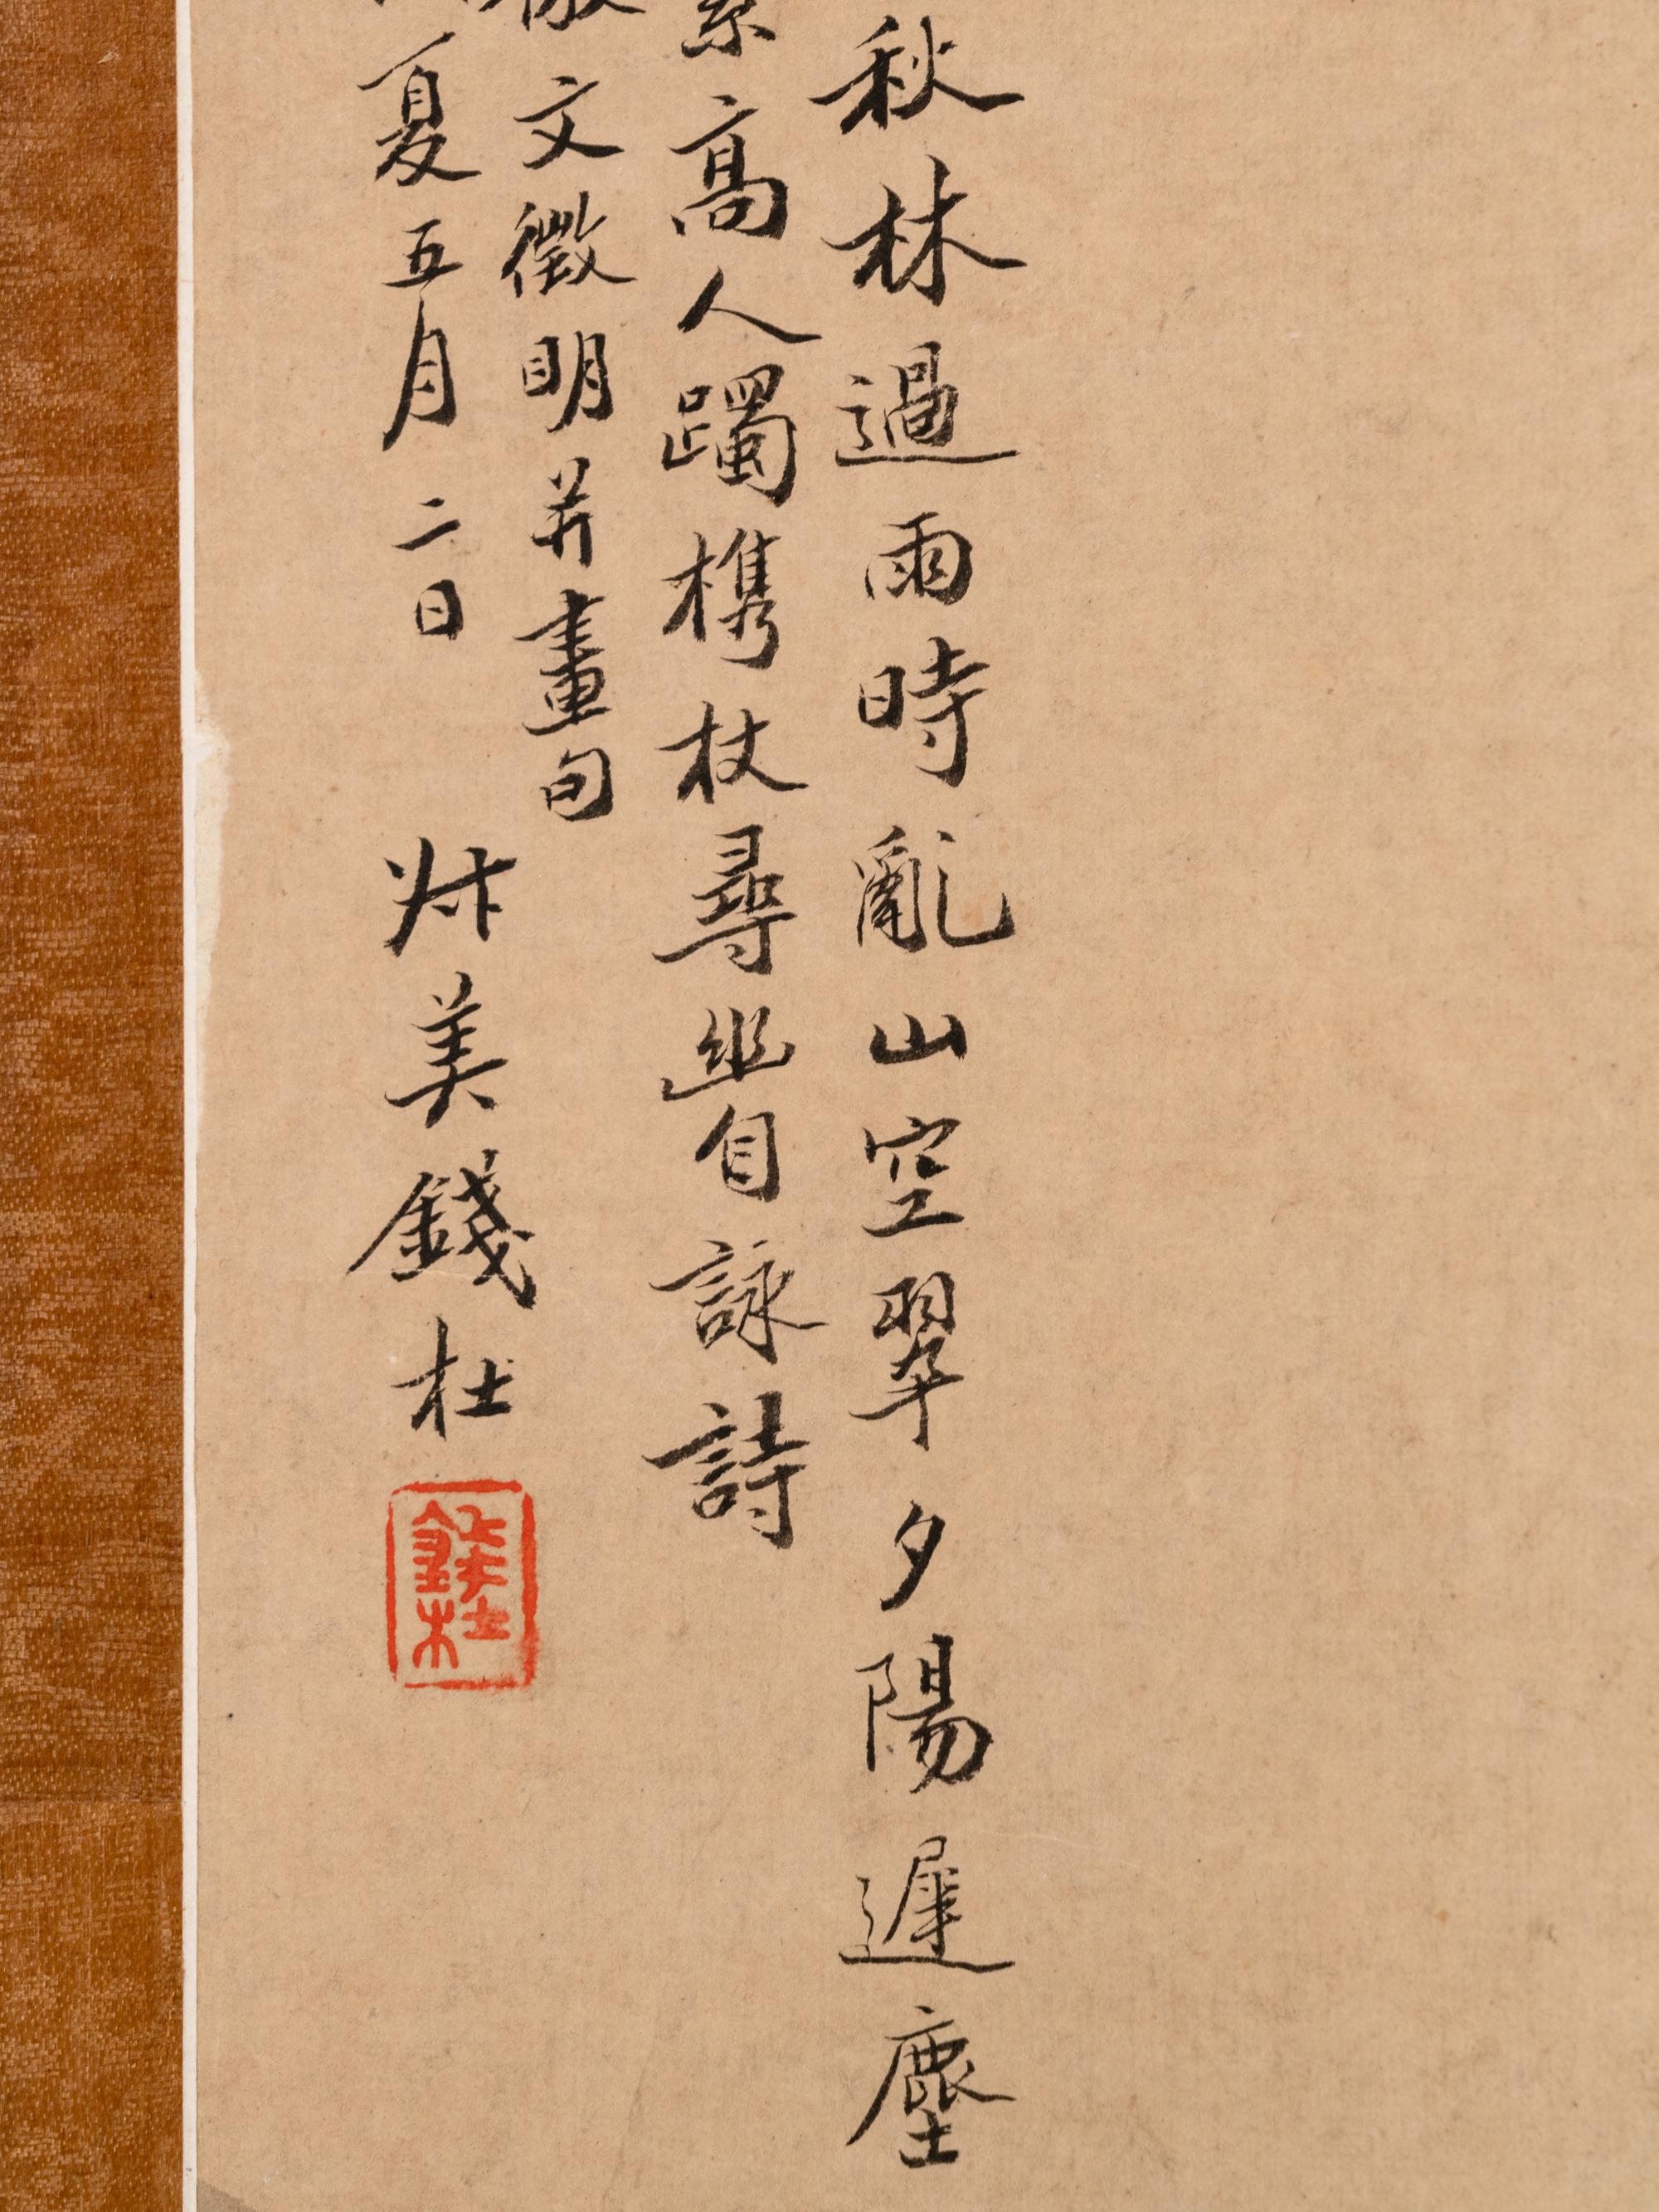 秋林過雨時亂山空翠夕陽遲塵
高人躅携杖尋幽自詠詩
文徵明并畫句
夏五月二日 叔美錢杜
錢杜